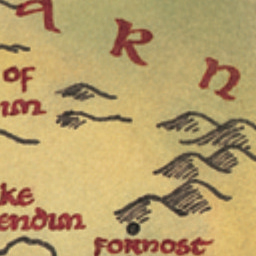 a r n
of
im
ke
endim
fornost